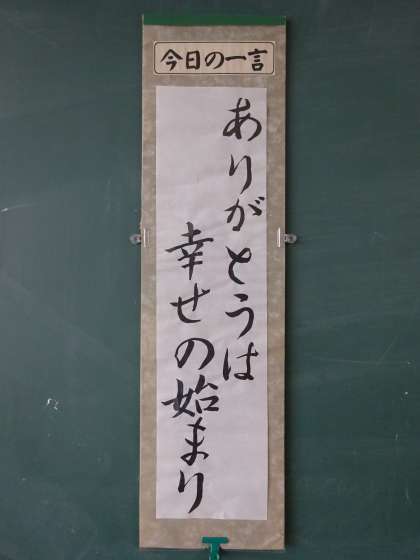 今日の一言
ありがとうは
幸せの始まり